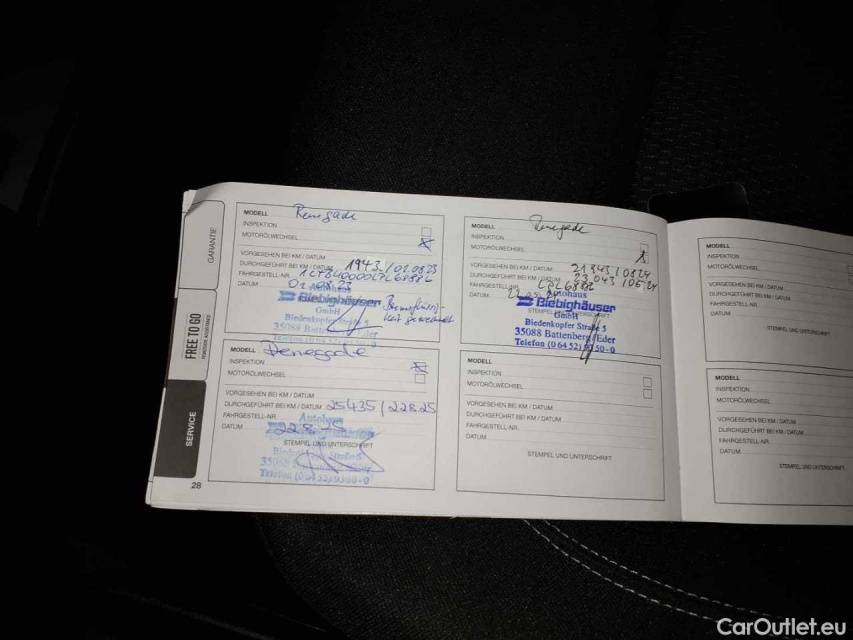 GARANTIE
FREE TO GO
SERVICE
28
MODELL Renegade
INSPEKTION
MOTORÖLWECHSEL
VORGESEHEN BEI KM / DATUM
DURCHGEFÜHRT BEI KM / DATUM 1943 / 01.08.23
FAHRGESTELL-NR.
DATUM 01.08.23
Biebighäuser
GmbH
Biedenkopfer Straße 5
35088 Battenberg/Eder
MODELL Renegade
INSPEKTION
MOTORÖLWECHSEL
VORGESEHEN BEI KM / DATUM
DURCHGEFÜHRT BEI KM / DATUM 25435 / 22.8.25
FAHRGESTELL-NR.
DATUM 22.8.25
Autohaus
STEMPEL UND UNTERSCHRIFT
Telefon (0 64 52) 93 50-0
MODELL Renegade
INSPEKTION
MOTORÖLWECHSEL
VORGESEHEN BEI KM / DATUM 21943 / 08.24
DURCHGEFÜHRT BEI KM / DATUM 23043 / 05.24
FAHRGESTELL-NR. LPL68886
DATUM
Autohaus
Biebighäuser
GmbH
Biedenkopfer Straße 5
35088 Battenberg/Eder
Telefon (0 64 52) 93 50-0
MODELL
INSPEKTION
MOTORÖLWECHSEL
VORGESEHEN BEI KM / DATUM
DURCHGEFÜHRT BEI KM / DATUM
FAHRGESTELL-NR.
DATUM
STEMPEL UND UNTERSCHRIFT
MODELL
INSPEKTION
MOTORÖLWECHSEL
VORGESEHEN BEI KM / DATUM
DURCHGEFÜHRT BEI KM / DATUM
FAHRGESTELL-NR.
DATUM
STEMPEL UND UNTERSCHRIFT
MODELL
INSPEKTION
MOTORÖLWECHSEL
VORGESEHEN BEI KM / DATUM
DURCHGEFÜHRT BEI KM / DATUM
FAHRGESTELL-NR.
DATUM
STEMPEL UND UNTERSCHRIFT
CarOutlet.eu